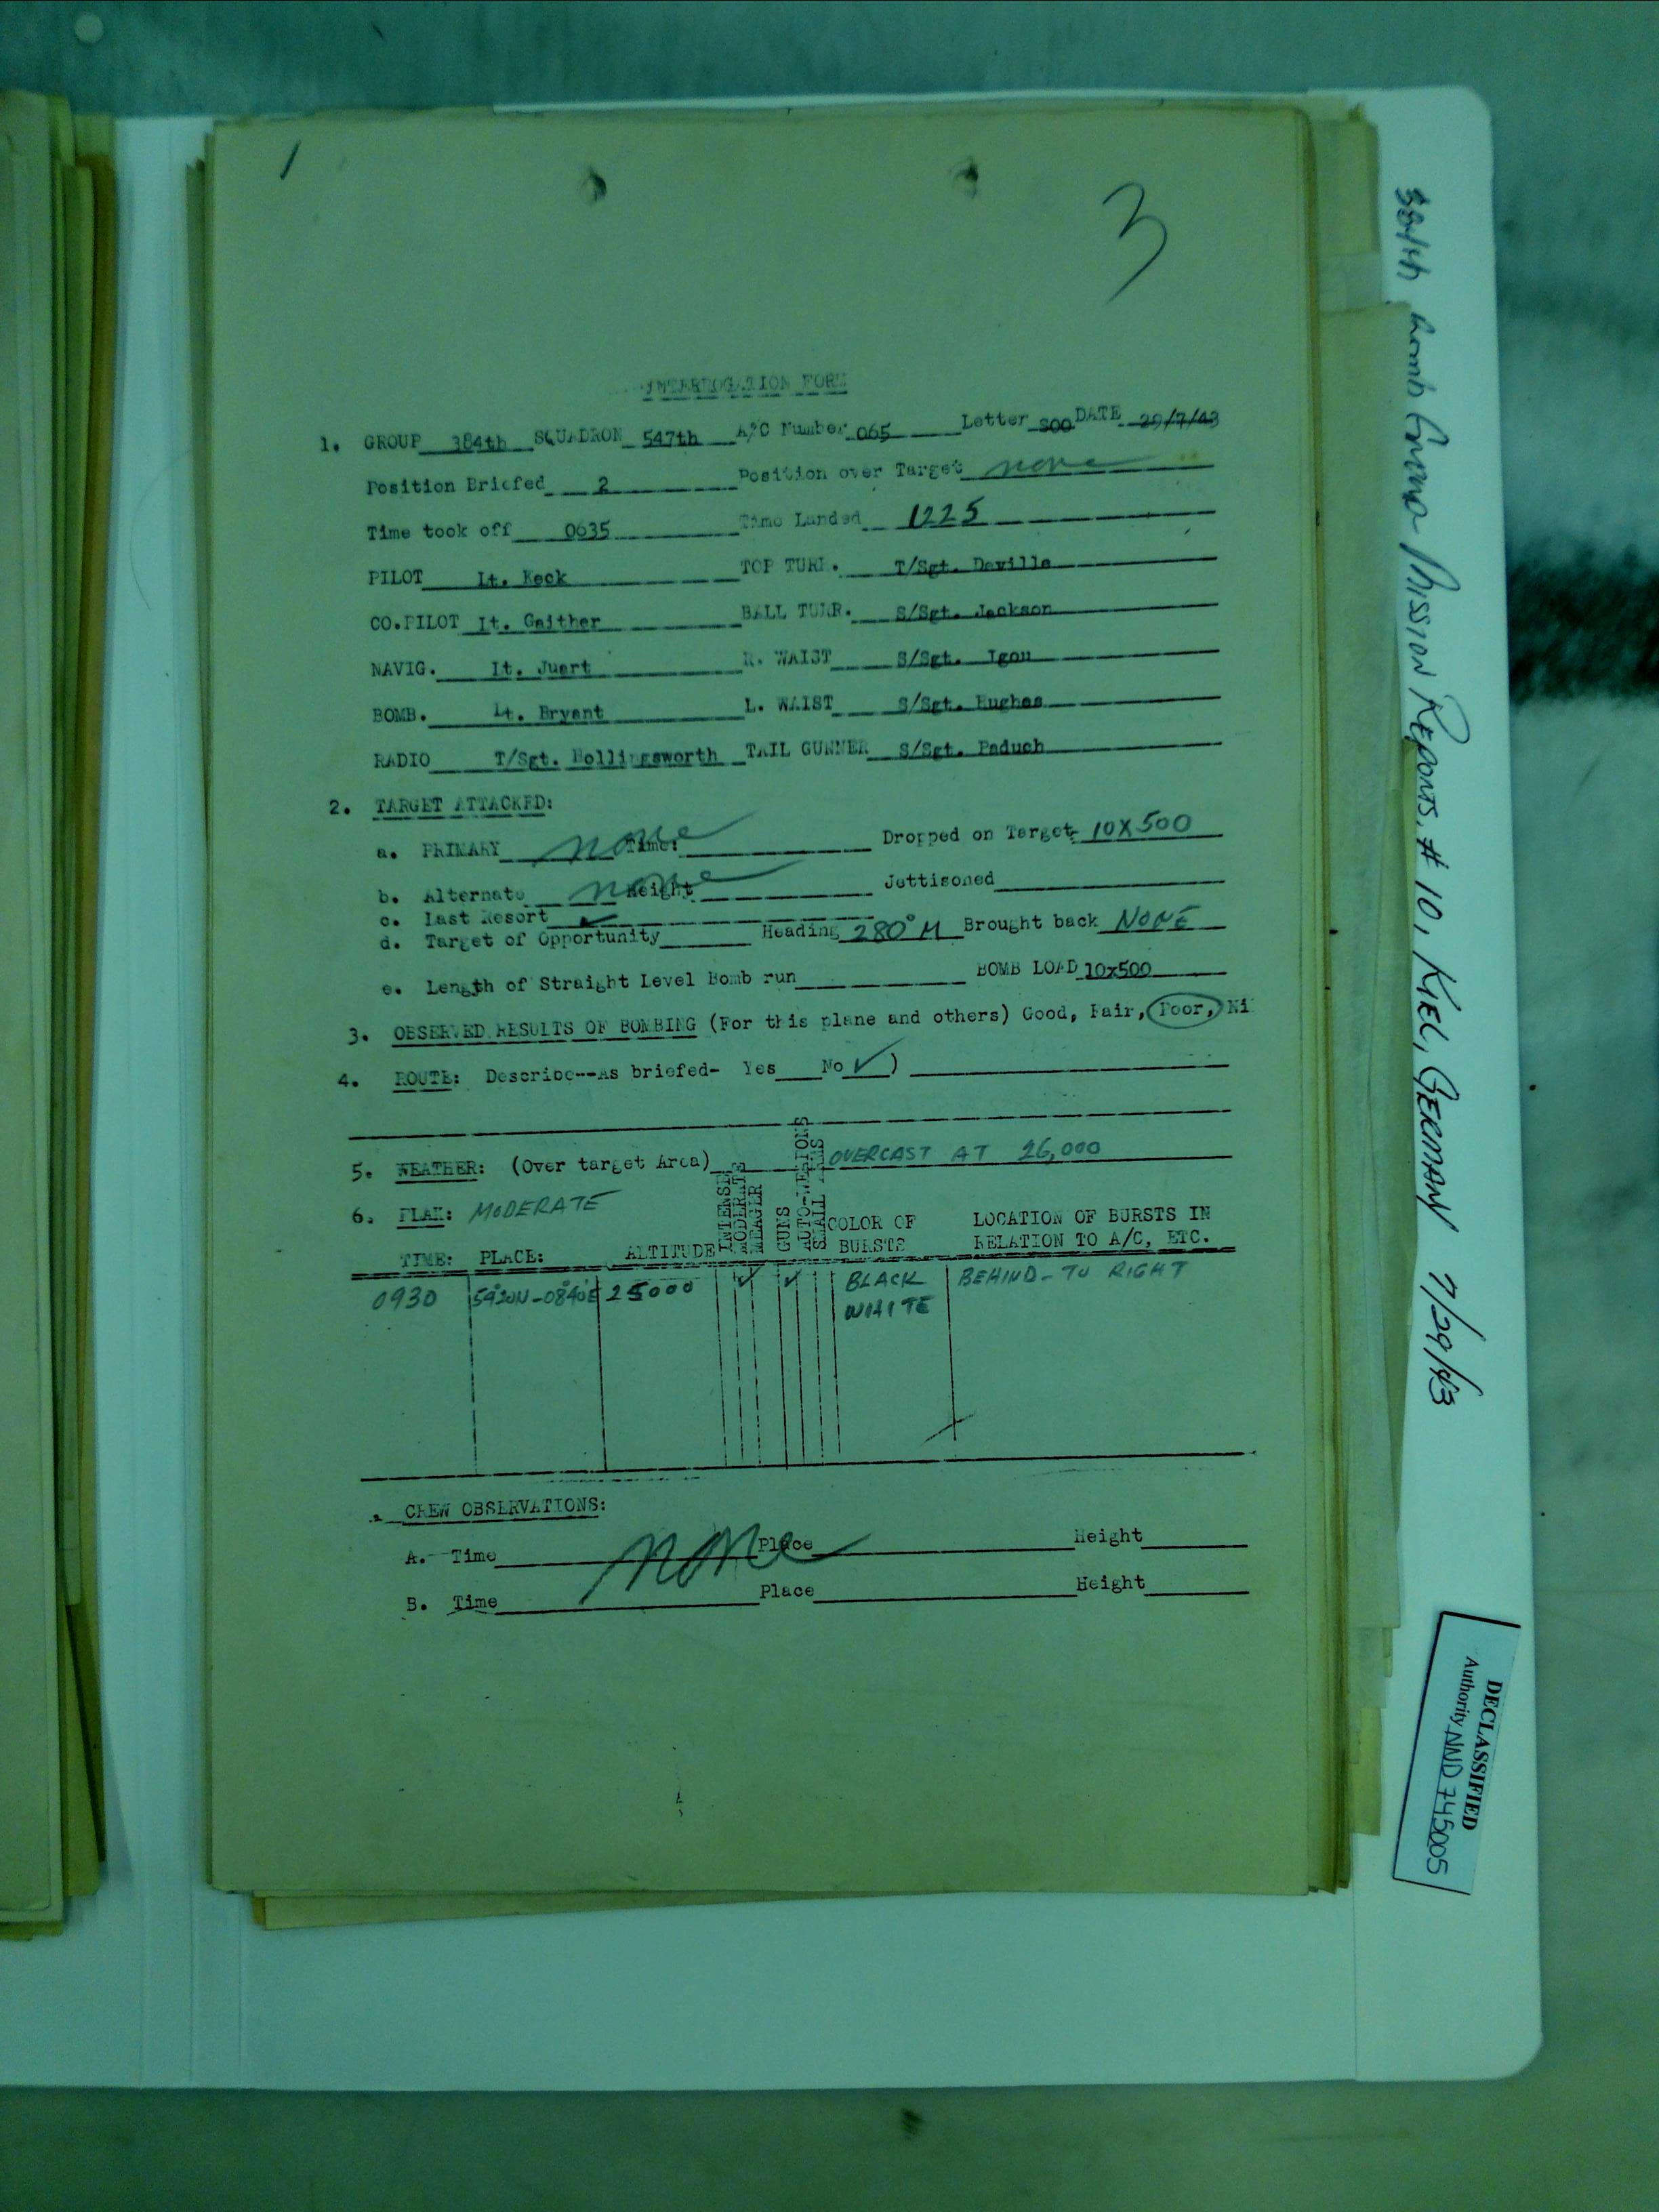 1
3
INTERROGATION FORM
1. GROUP 384th SQUADRON 547th A/C Number 065 Letter SOO DATE 29/7/43
Position Briefed 2 Position over Target none
Time took off 0635 Time Landed 1225
PILOT Lt. Keck TOP TURR. T/Sgt. Deville
CO.PILOT Lt. Gaither BALL TURR. S/Sgt. Jackson
NAVIG. Lt. Juart R. WAIST S/Sgt. Igou
BOMB. Lt. Bryant L. WAIST S/Sgt. Hughes
RADIO T/Sgt. Hollingsworth TAIL GUNNER S/Sgt. Paduch
2. TARGET ATTACKED:
a. PRIMARY none Time: Dropped on Target 10X500
b. Alternate none Height Jettisoned
c. Last Resort ✓
d. Target of Opportunity Heading 280° M Brought back NONE
e. Length of Straight Level Bomb run BOMB LOAD 10x500
3. OBSERVED RESULTS OF BOMBING (For this plane and others) Good, Fair, Poor, Ni
4. ROUTE: Describe--As briefed- Yes No ✓)
5. WEATHER: (Over target Area) OVERCAST AT 26,000
6. FLAK: MODERATE
TIME: PLACE: ALTITUDE INTENSE MODERATE MEAGER GUNS AUTO-WEAPONS SMALL ARMS COLOR OF BURSTS LOCATION OF BURSTS IN RELATION TO A/C, ETC.
0930 5420N-0840E 25000 ✓ ✓ BLACK BEHIND - TO RIGHT
WHITE
CREW OBSERVATIONS:
A. Time none Place Height
B. Time Place Height
384th Bomb Group Mission Reports. # 10, KIEL, GERMANY 7/29/43
DECLASSIFIED
Authority NND 745005